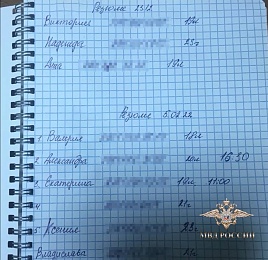 Резюме 23.12
Виктория 19л
Надежда 23г
Аня 18л
Резюме 5.02.22
1. Валерия 18л
2. Александра 20л 16:30
3. Екатерина 19л 17:00
4 21г
5 Ксения 23г
Владислава
МВД РОССИИ